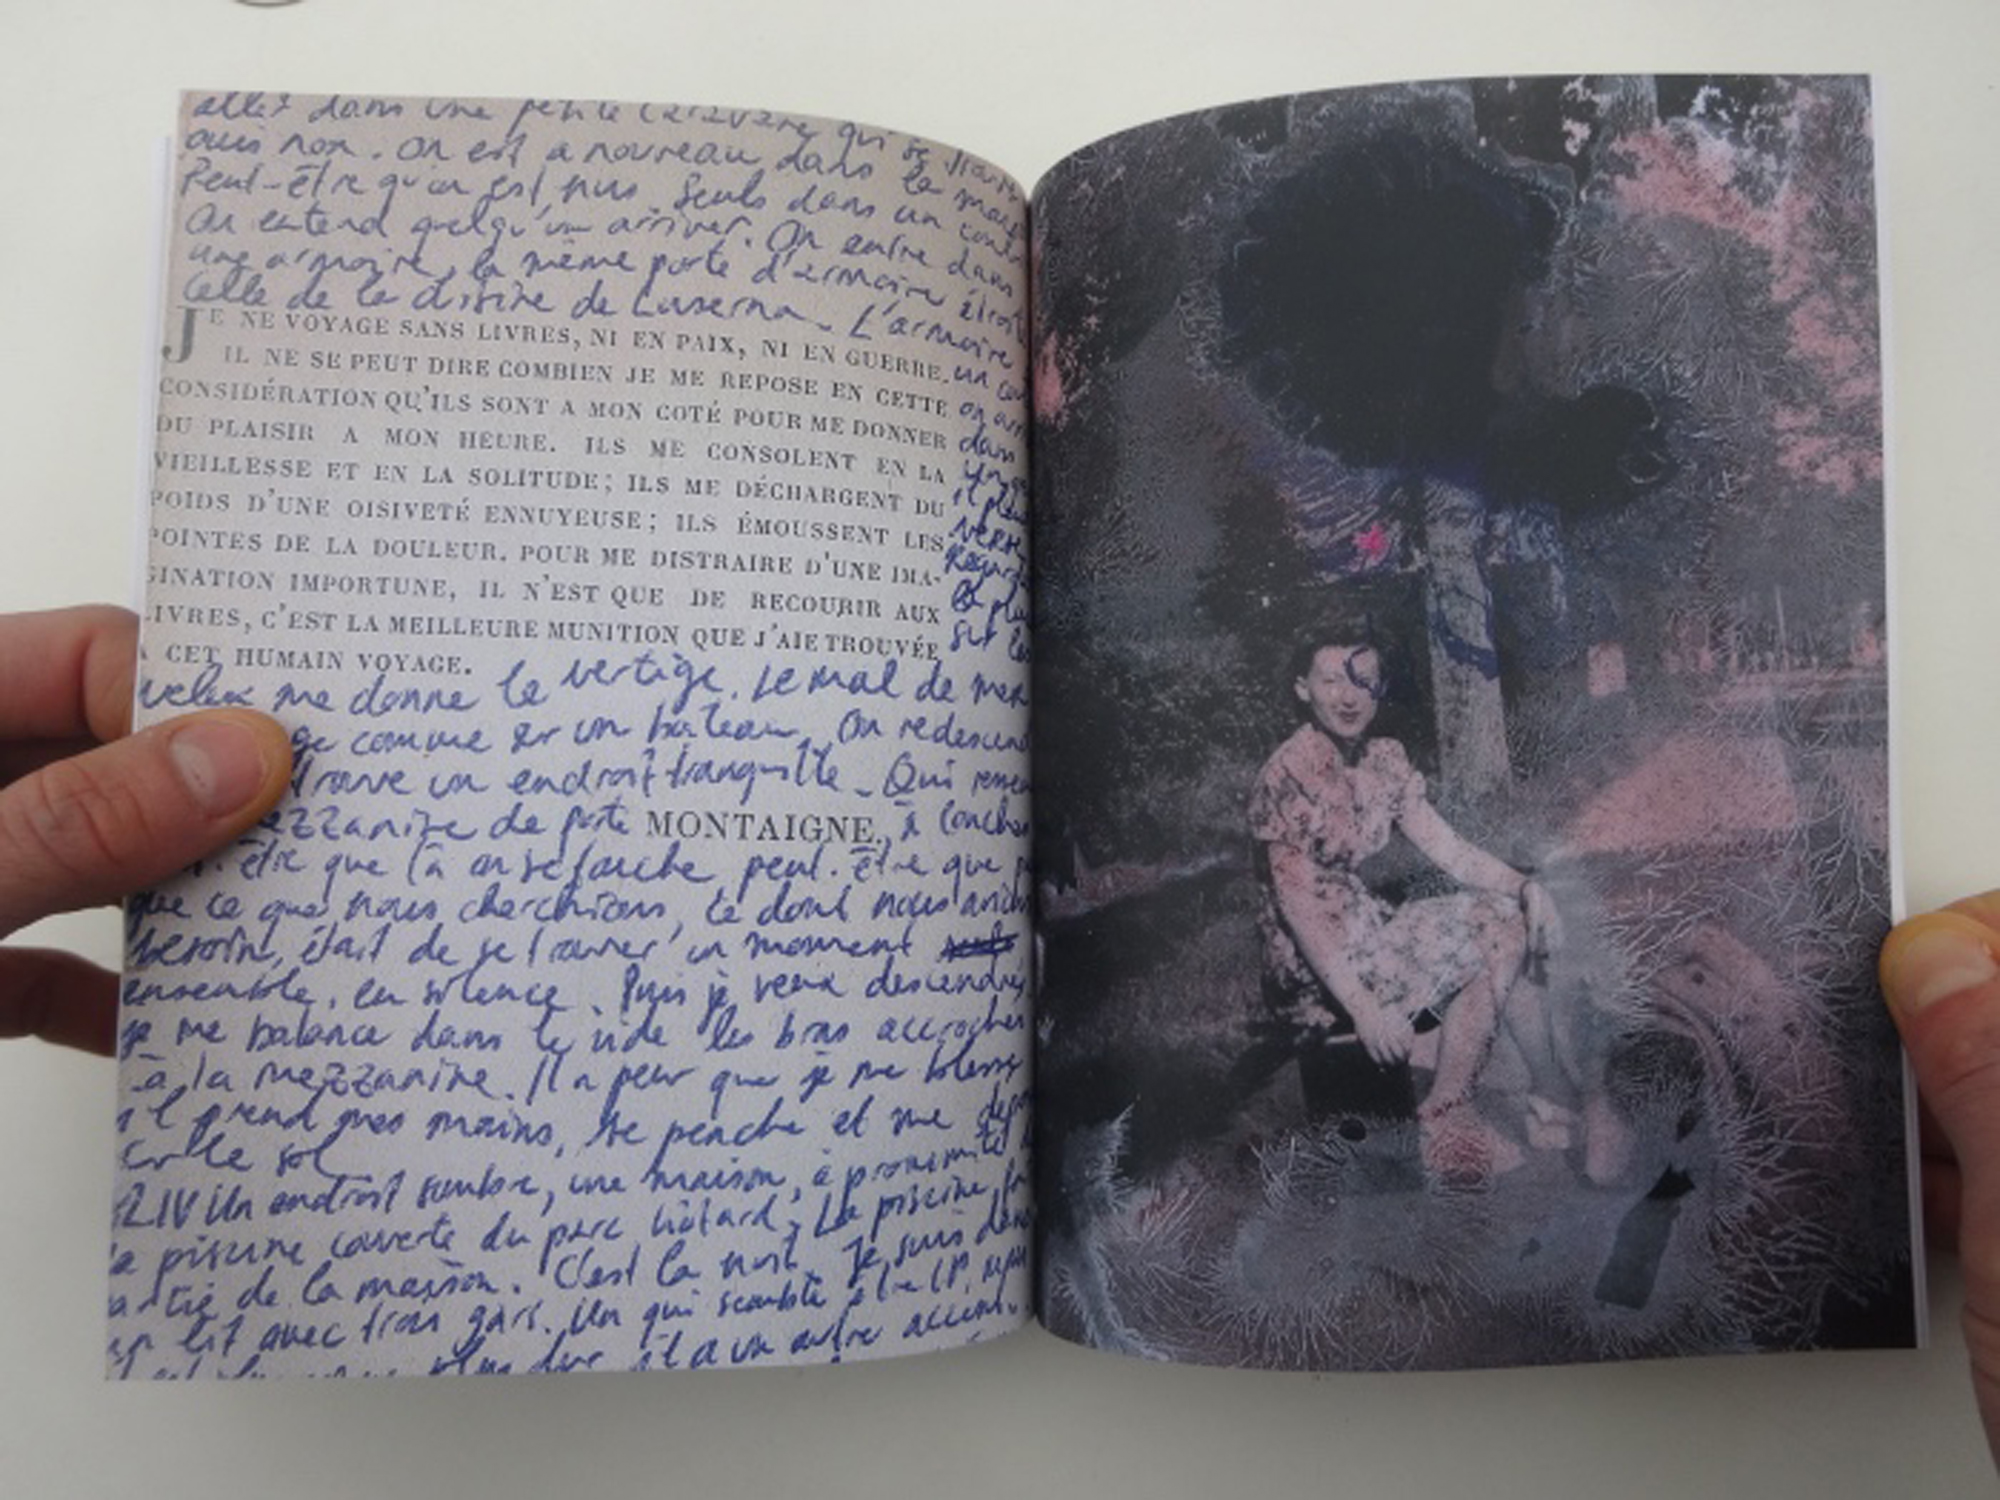 aller dans une petite caravane qui se
mais non. On est a nouveau dans la
Peut-être qu'on est nus. Seuls dans un
On entend quelqu'un arriver. On entre dans
une armoire, la même porte d'armoire
celle de la cuisine de Luserna. L'armoire
JE NE VOYAGE SANS LIVRES, NI EN PAIX, NI EN GUERRE.
IL NE SE PEUT DIRE COMBIEN JE ME REPOSE EN CETTE un
CONSIDÉRATION QU'ILS SONT A MON COTÉ POUR ME DONNER on
DU PLAISIR A MON HEURE. ILS ME CONSOLENT EN LA dans
VIEILLESSE ET EN LA SOLITUDE; ILS ME DÉCHARGENT DU
POIDS D'UNE OISIVETÉ ENNUYEUSE; ILS ÉMOUSSENT LES il
POINTES DE LA DOULEUR. POUR ME DISTRAIRE D'UNE IMA-
GINATION IMPORTUNE, IL N'EST QUE DE RECOURIR AUX
LIVRES, C'EST LA MEILLEURE MUNITION QUE J'AIE TROUVÉE sur
A CET HUMAIN VOYAGE.
velux me donne le vertige. Le mal de mer
comme sur un bateau. On redescend
trouve un endroit tranquille. Qui
mezzanine de MONTAIGNE. à
être que là on se couche peut-être que
que ce que nous cherchions, ce dont nous
besoin, était de se trouver un moment
ensemble, en silence. Puis je veux descendre
je me balance dans le vide les bras accrocher
à la mezzanine. Il a peur que je me blesse
il prend mes mains, se penche et me
sur le sol
Un endroit sombre, une maison, à proximité
la piscine couverte du parc La piscine
partie de la maison. C'est la nuit. Je suis dans
un lit avec trois gars. Un qui semble être
il a un autre accent.